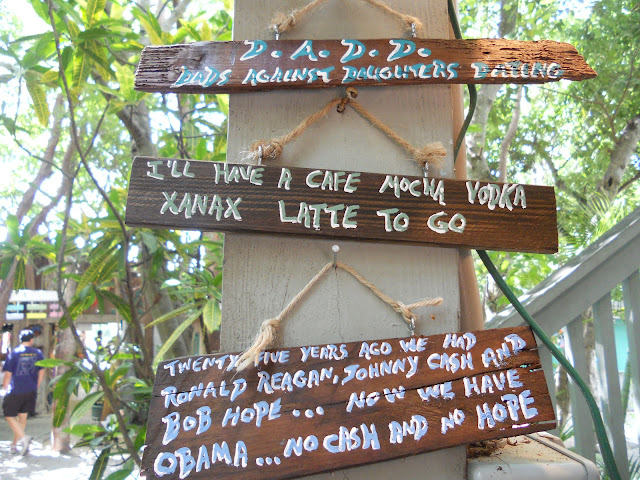 D.A.D.D.
DADS AGAINST DAUGHTERS DATING
I'LL HAVE A CAFE MOCHA VODKA
XANAX LATTE TO GO
TWENTY FIVE YEARS AGO WE HAD
RONALD REAGAN, JOHNNY CASH AND
BOB HOPE... NOW WE HAVE
OBAMA... NO CASH AND NO HOPE